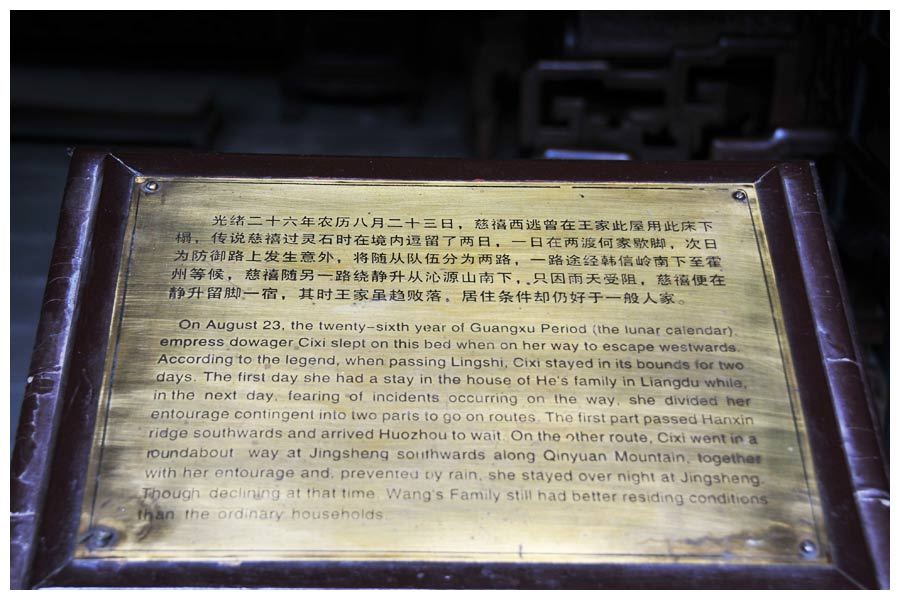 光绪二十六年农历八月二十三日，慈禧西逃曾在王家此屋用此床下
榻，传说慈禧过灵石时在境内逗留了两日，一日在两渡何家歇脚，次日
为防御路上发生意外，将随从队伍分为两路，一路途经韩信岭南下至霍
州等候，慈禧随另一路绕静升从沁源山南下，只因雨天受阻，慈禧便在
静升留脚一宿，其时王家虽趋败落，居住条件却仍好于一般人家。
On August 23, the twenty-sixth year of Guangxu Period (the lunar calendar),
empress dowager Cixi slept on this bed when on her way to escape westwards.
According to the legend, when passing Lingshi, Cixi stayed in its bounds for two
days. The first day she had a stay in the house of He's family in Liangdu while,
in the next day, fearing of incidents occurring on the way, she divided her
entourage contingent into two parts to go on routes. The first part passed Hanxin
ridge southwards and arrived Huozhou to wait. On the other route, Cixi went in a
roundabout way at Jingsheng southwards along Qinyuan Mountain, together
with her entourage and, prevented by rain, she stayed over night at Jingsheng.
Though declining at that time, Wang's Family still had better residing conditions
than the ordinary households.